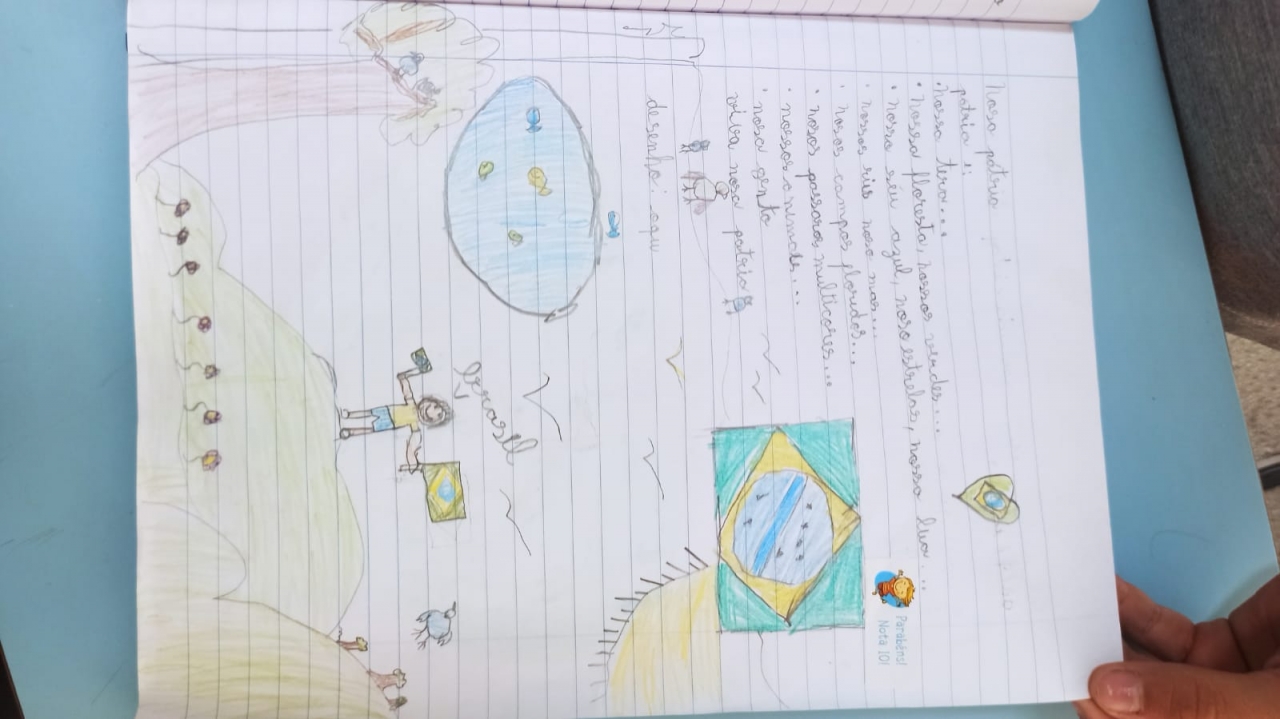 Nosa pátria
pátria é:
• nossa tera...
• nossa floresta, nossos verdes...
• nosso séu azul, noso estrelas, nosso lua...
• nossos rius noso mar...
• nosos campos floridos...
• nosos passaros multicores...
• nossos animais...
• nosa gente
viva nosa pátria
desenho: aqui
Brasil
Parabéns!
Nota 10!